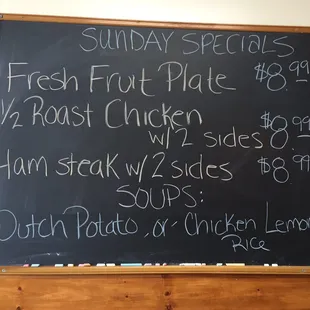 SUNDAY SPECIALS
Fresh Fruit Plate $8.99
1/2 Roast Chicken
w/ 2 sides 8.99
Ham steak w/ 2 sides $8.99
SOUPS:
Dutch Potato -or- Chicken Lemon
RICE